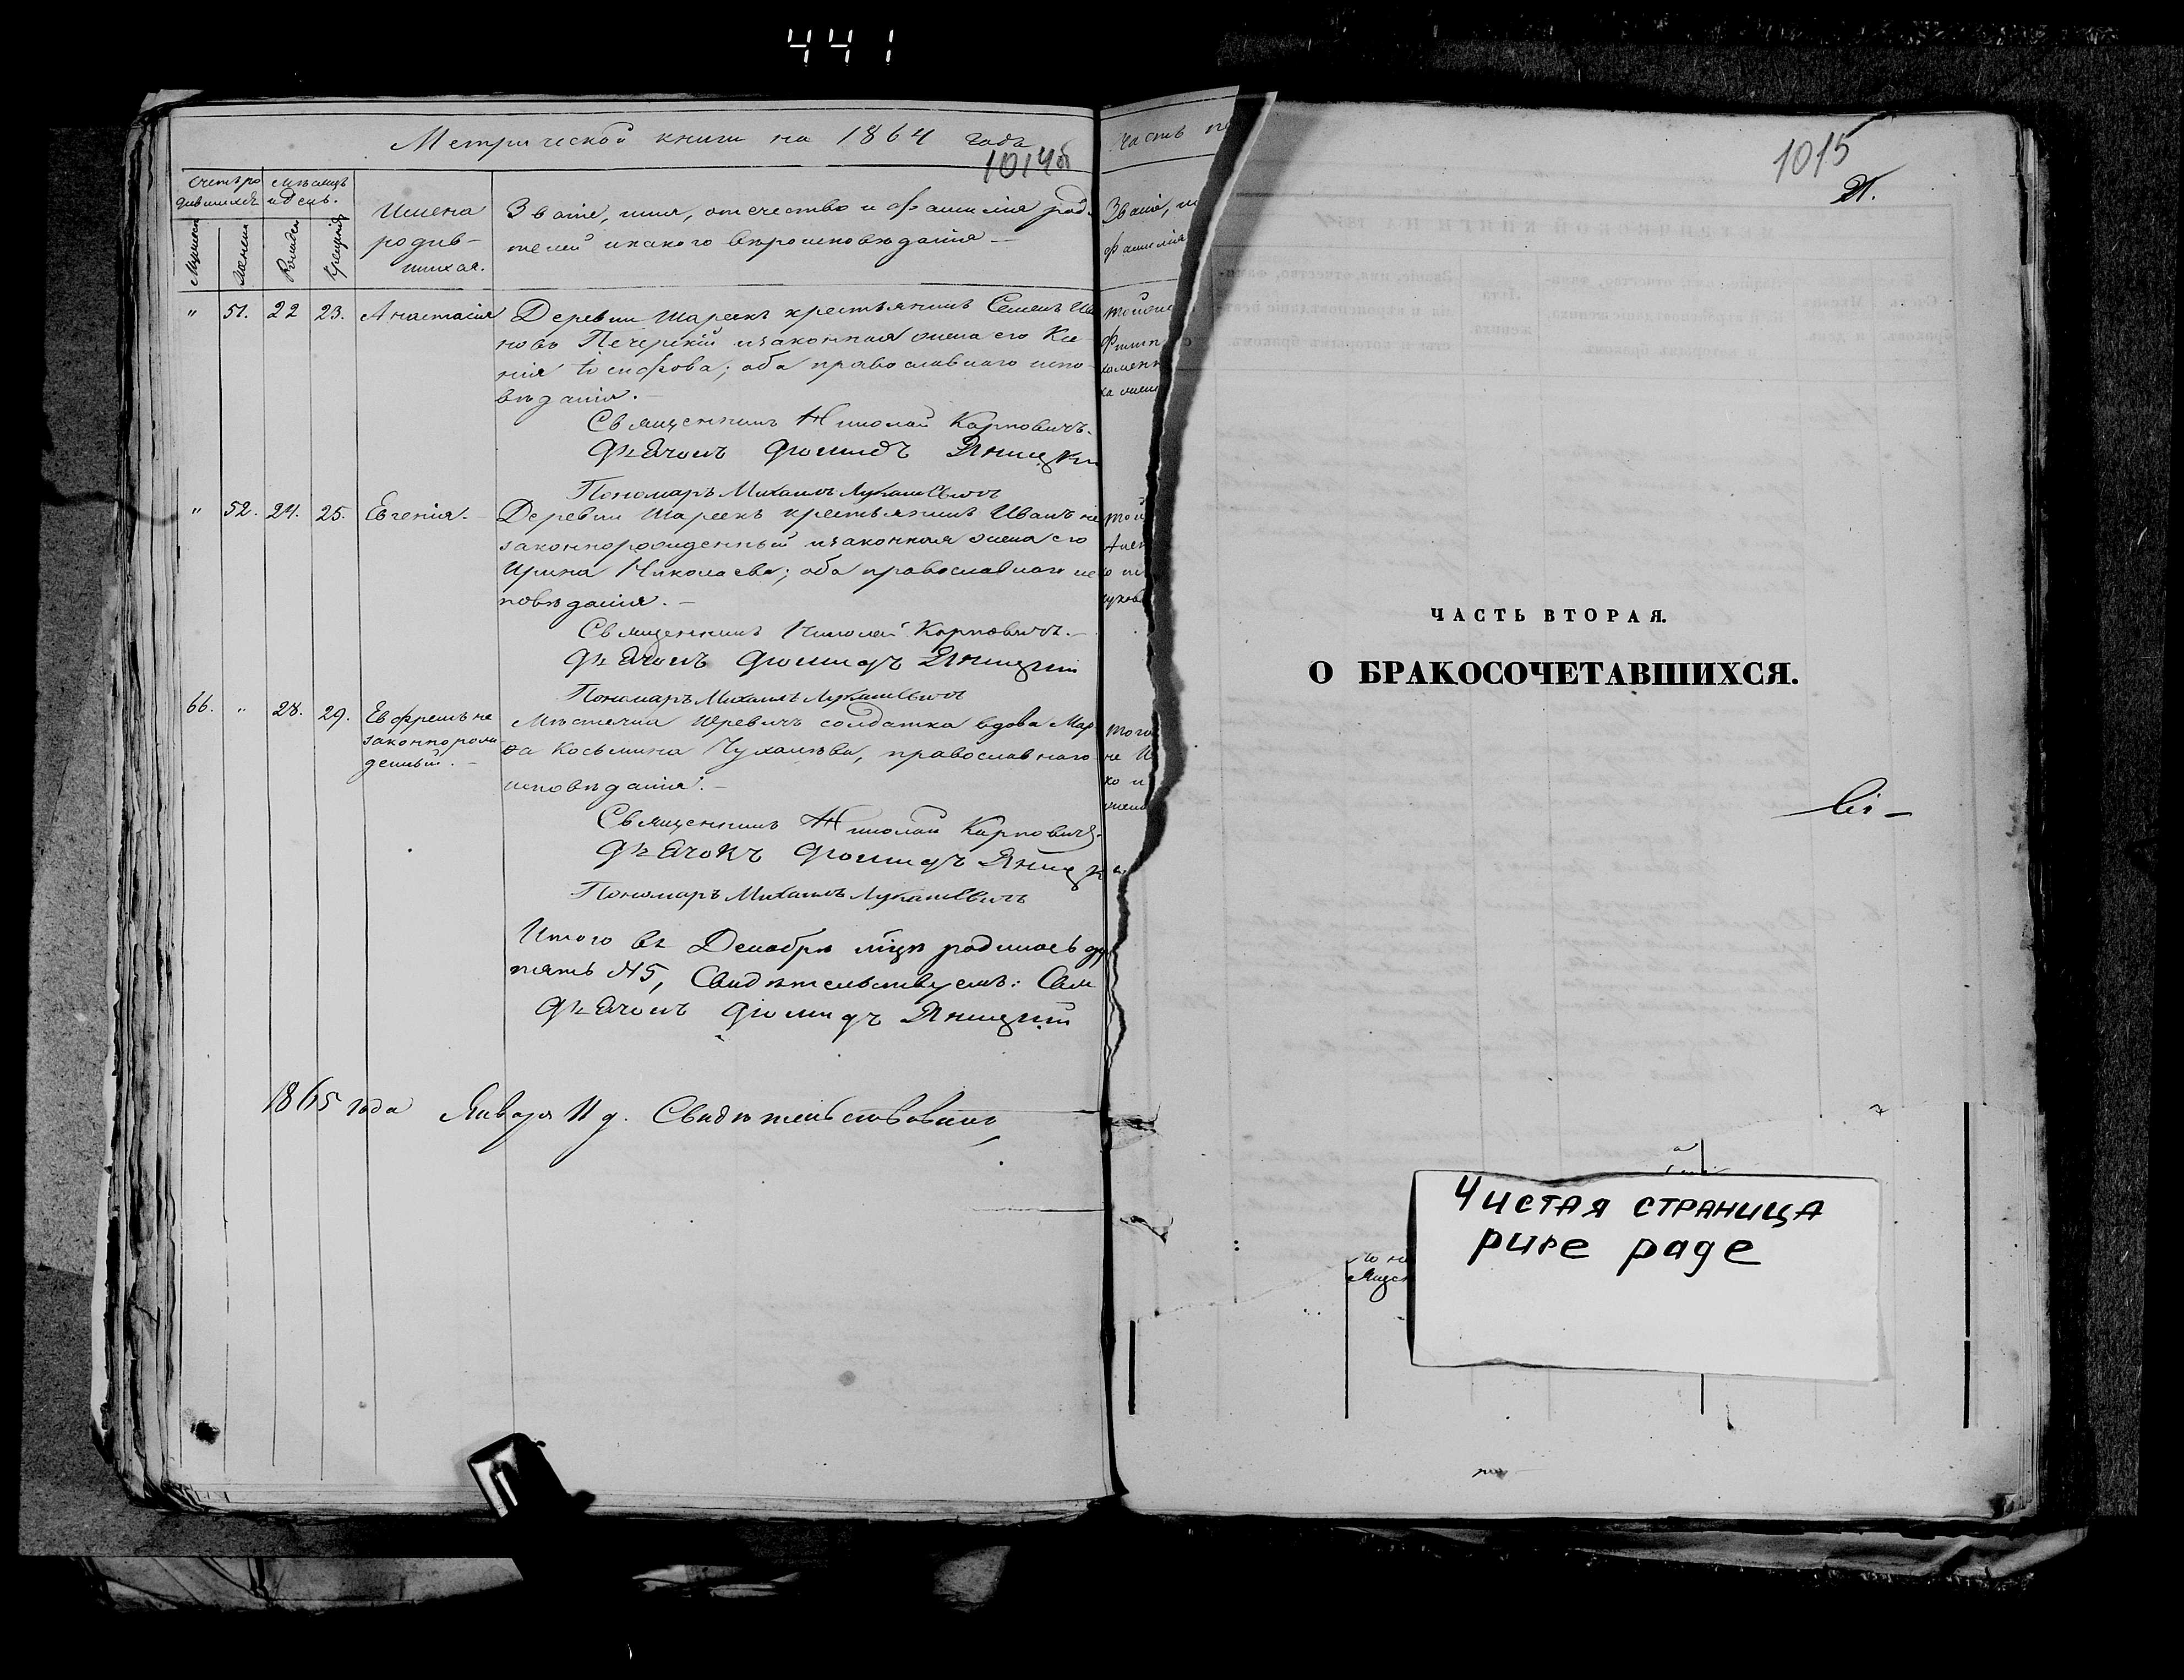 441
Метрической книги на 1864 года
1014об
Счетъ ро
дившихся
Мѣсяцъ
и день.
Мужеска
Женска
Рожден
Крещенія
Имена
родив-
шихся.
Званіе, имя, отчество и фамилія роди
телей и какого вѣроисповѣданія —
" 51. 22 23. Анастасія Деревни Шареекъ крестьянинъ Семенъ Ива
новъ Печерскій и законная жена его Ксе
нія Іосифова; оба православнаго испо-
вѣданія. —
Священникъ Николай Карповичъ.
Дьячокъ Діомидъ Яницкій
Пономаръ Михаилъ Лукашевичъ
" 52. 24. 25. Евгенія. Деревни Шареекъ крестьянинъ Иванъ не
законнорожденный и законная жена его
Ирина Николаева; оба православнаго ис
повѣданія. —
Священникъ Николай Карповичъ. —
Дьячокъ Діомидъ Яницкій
Пономаръ Михаилъ Лукашевичъ
66. " 28. 29. Ефремъ не
законнорож
денный. —
Мѣстечка Шревичъ солдатка вдова Мар
ѳа Косьмина Чухалева, православнаго
исповѣданія. —
Священникъ Николай Карповичъ.
Дьячокъ Діомидъ Яницкій
Пономаръ Михаилъ Лукашевичъ
Итого въ Декабрѣ мцѣ родилось
пять №5, Свидѣтельствуемъ:
Дьячокъ Діомидъ Яницкій
1865 года Января 11 д. Свидѣтельствовалъ
Часть пе
Званіе, и
фамилія
1015
21.
ЧАСТЬ ВТОРАЯ.
О БРАКОСОЧЕТАВШИХСЯ.
Чистая страница
pure page